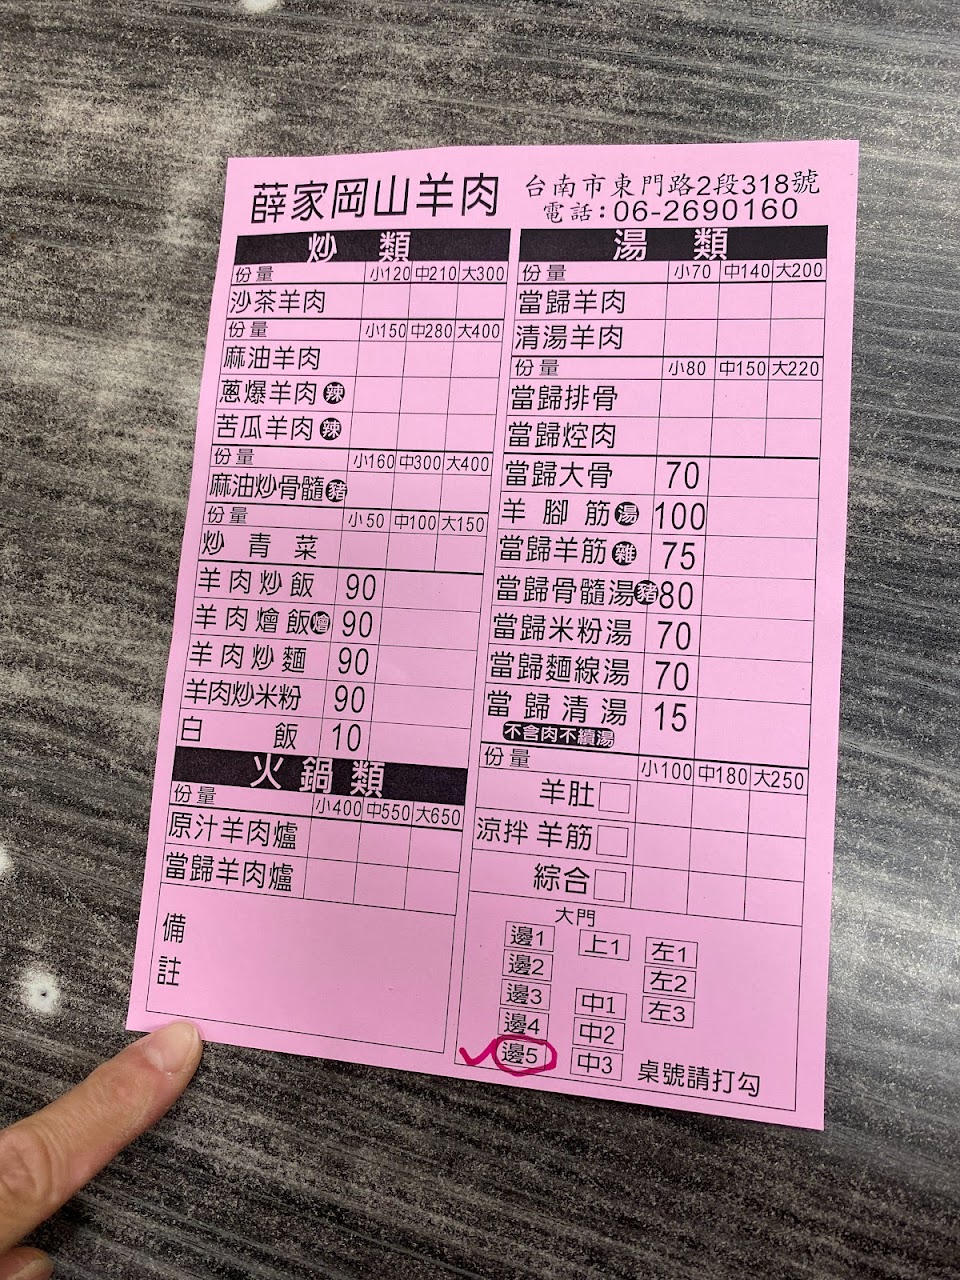 薛家岡山羊肉
台南市東門路2段318號
電話:06-2690160
炒 類
份量 小120 中210 大300
沙茶羊肉
份量 小150 中280 大400
麻油羊肉
蔥爆羊肉 辣
苦瓜羊肉 辣
份量 小160 中300 大400
麻油炒骨髓 豬
份量 小50 中100 大150
炒青菜
羊肉炒飯 90
羊肉燴飯 燴 90
羊肉炒麵 90
羊肉炒米粉 90
白飯 10
火鍋類
份量 小400 中550 大650
原汁羊肉爐
當歸羊肉爐
備註
湯 類
份量 小70 中140 大200
當歸羊肉
清湯羊肉
份量 小80 中150 大220
當歸排骨
當歸焢肉
當歸大骨 70
羊腳筋 湯 100
當歸羊筋 雜 75
當歸骨髓湯 豬 80
當歸米粉湯 70
當歸麵線湯 70
當歸清湯 15
不含肉不續湯
份量 小100 中180 大250
羊肚
涼拌 羊筋
綜合
大門
邊1 上1 左1
邊2 左2
邊3 中1 左3
邊4 中2
邊5 中3 桌號請打勾